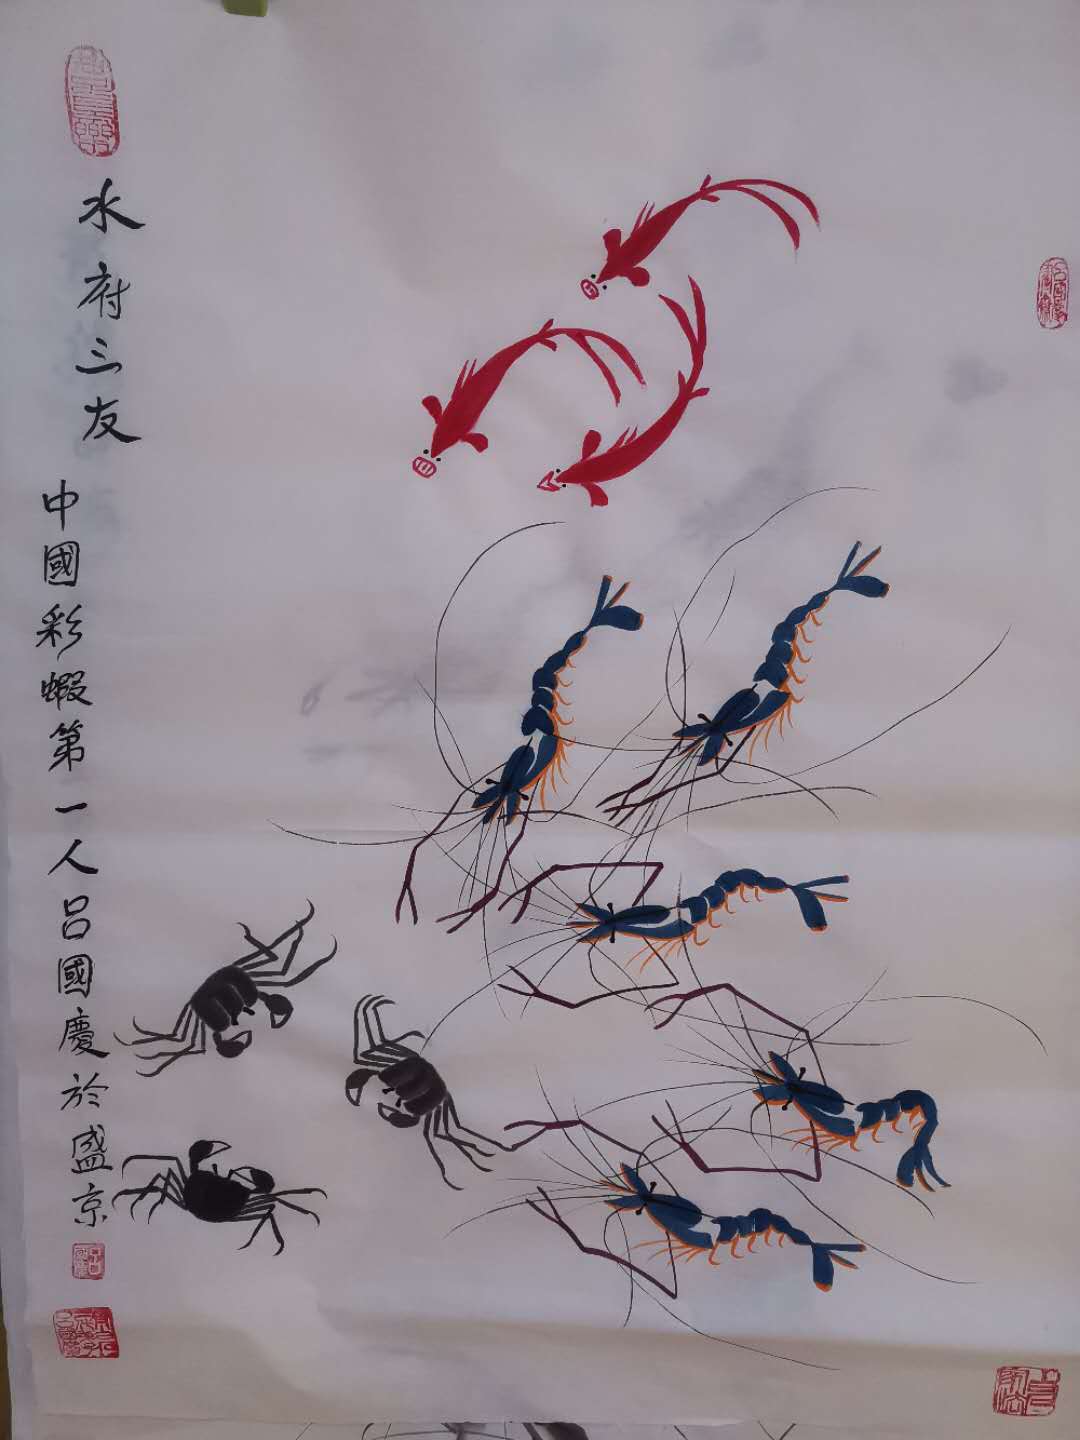 水府三友
中國彩蝦第一人呂國慶於盛京